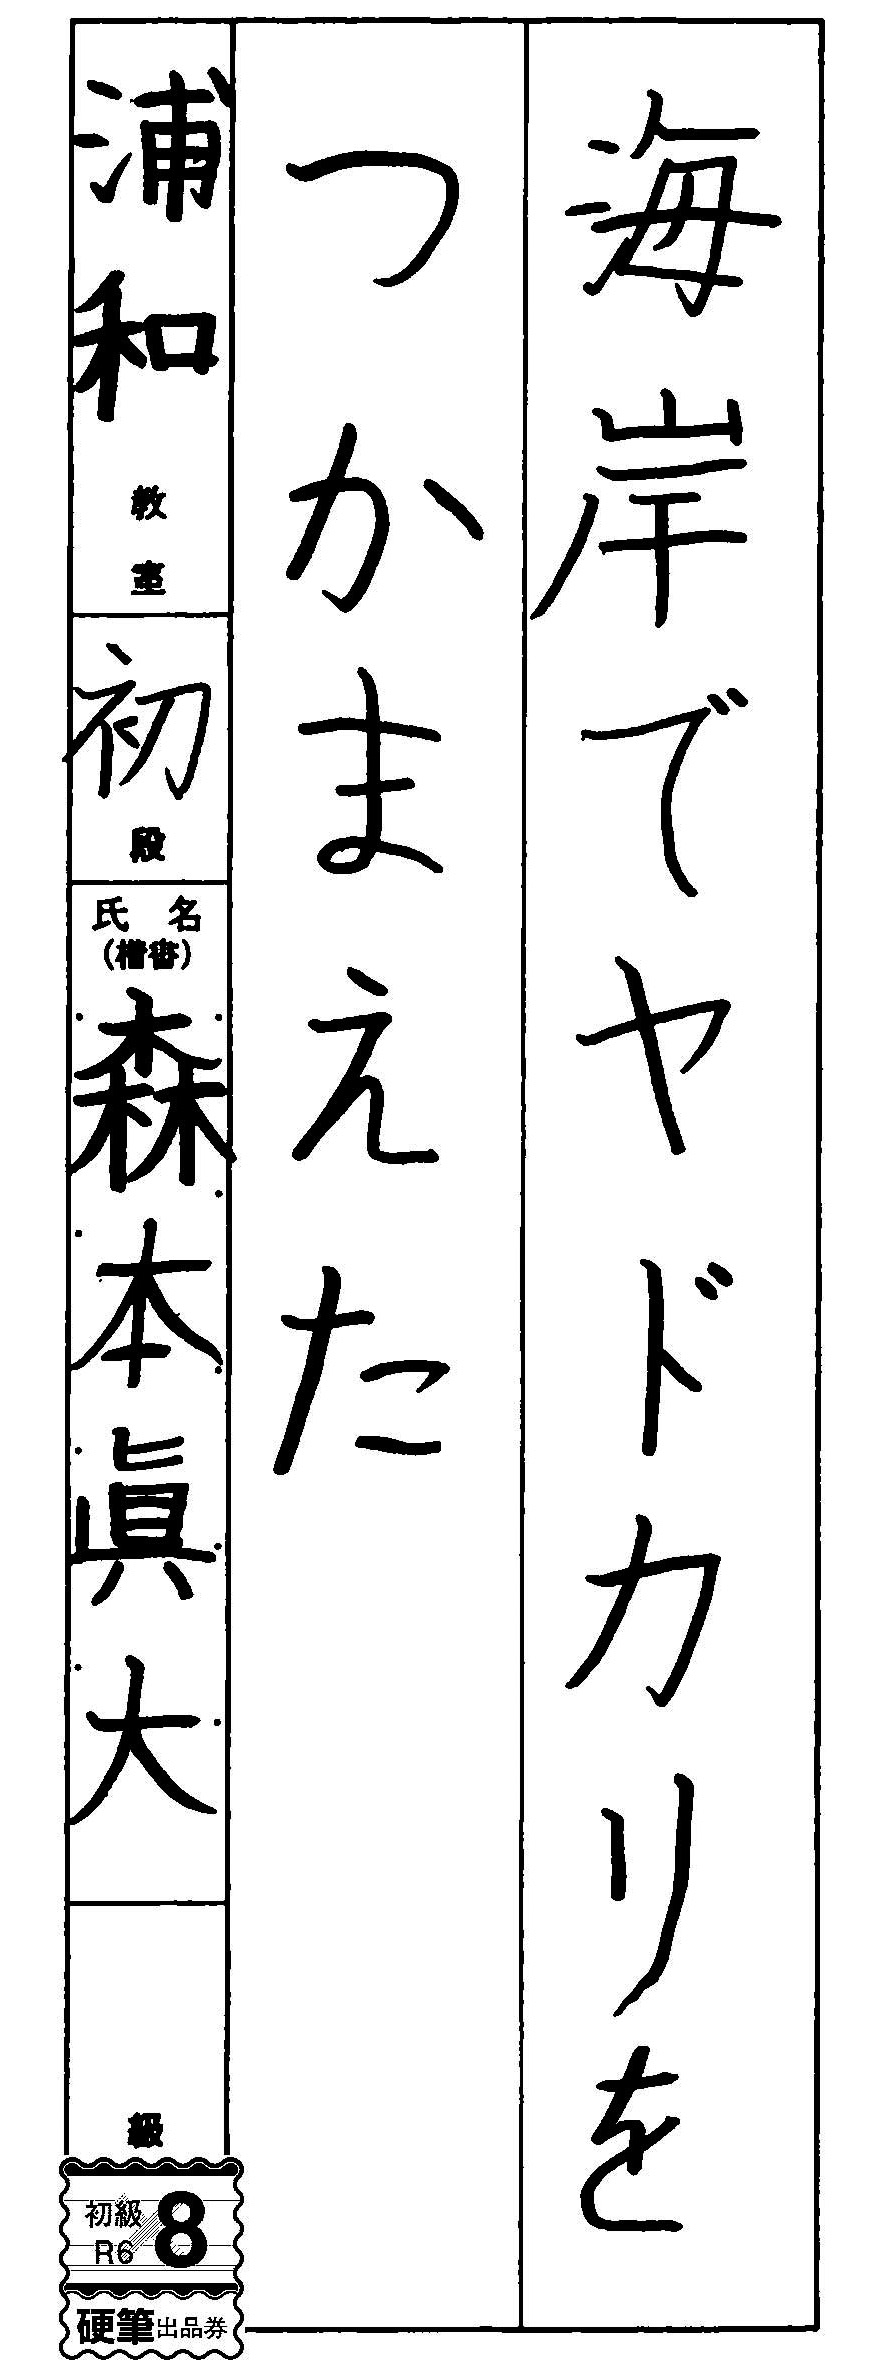 海岸でヤドカリを
つかまえた
浦和教室
初段
氏名
(楷書)
森本眞大
級
初級
R6
8
硬筆出品券